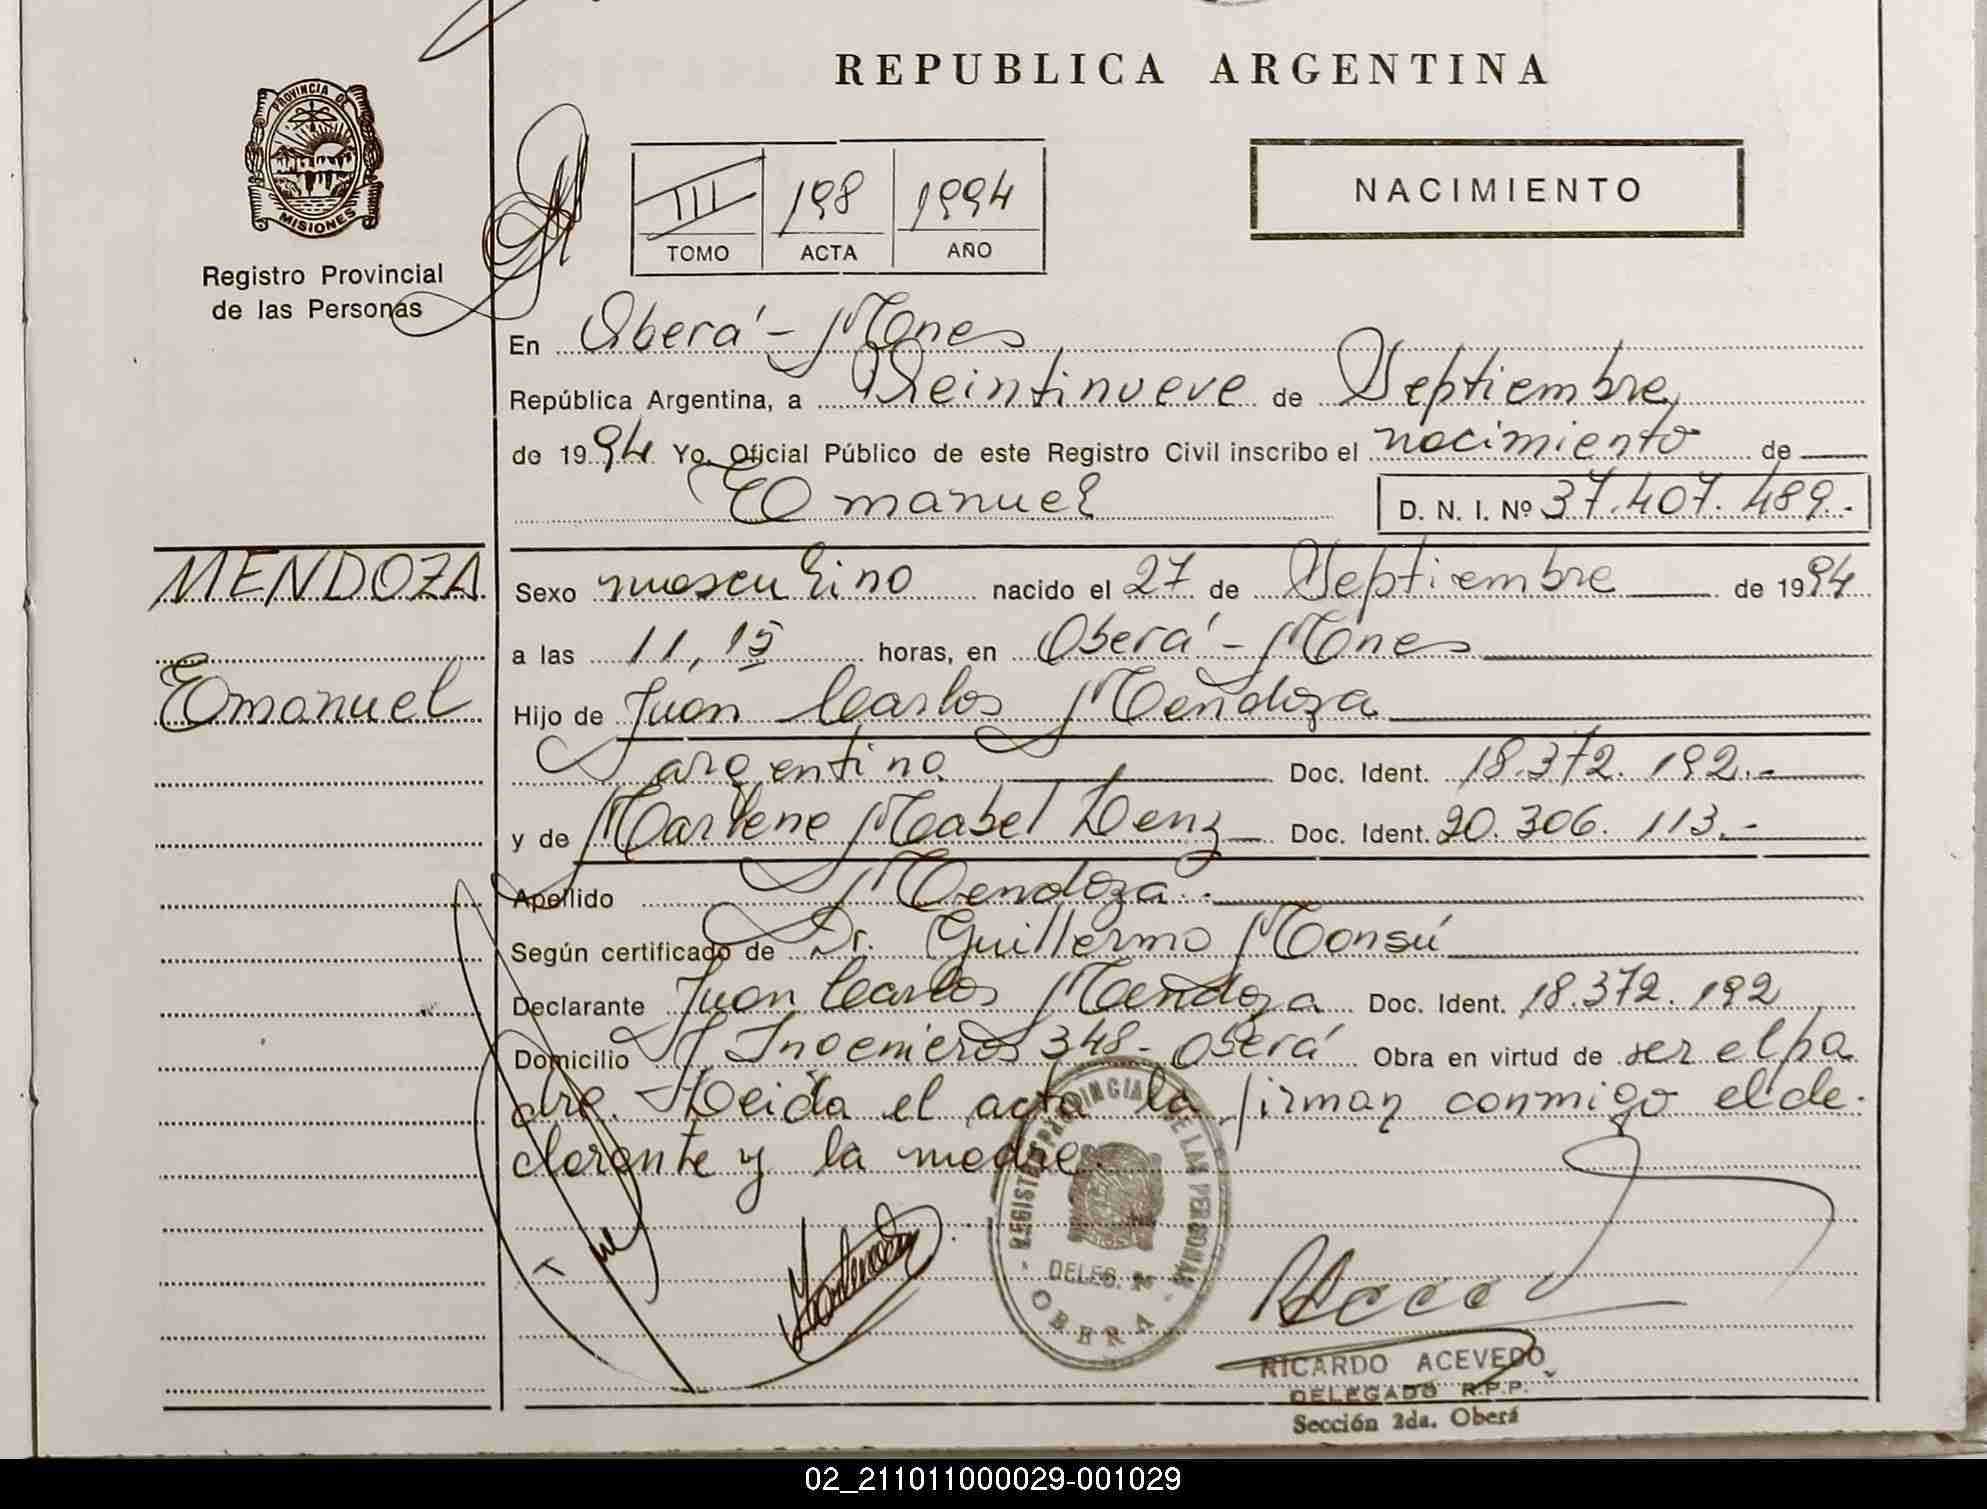 REPUBLICA ARGENTINA
PROVINCIA DE
MISIONES
Registro Provincial
de las Personas
III 198 1994
TOMO ACTA AÑO
NACIMIENTO
En Oberá - Mnes
República Argentina, a Veintinueve de Septiembre
de 1994 Yo, Oficial Público de este Registro Civil inscribo el nacimiento de
Emanuel D. N. I. Nº 37.407.489.-
MENDOZA
Emanuel
Sexo masculino nacido el 27 de Septiembre de 1994
a las 11,15 horas, en Oberá - Mnes
Hijo de Juan Carlos Mendoza
argentino Doc. Ident. 18.372.192.-
y de Marlene Mabel Lenz Doc. Ident. 20.306.113.-
Apellido Mendoza.-
Según certificado de Dr. Guillermo Monsú
Declarante Juan Carlos Mendoza Doc. Ident. 18.372.192
Domicilio J Ingenieros 348 - Oberá Obra en virtud de ser el pa
dre. Leida el acta la firman conmigo el de-
clarante y la madre.
REGISTRO PROVINCIAL DE LAS PERSONAS
DELEG.
OBERA
RICARDO ACEVEDO
DELEGADO R.P.P.
Sección 2da. Oberá
02_211011000029-001029